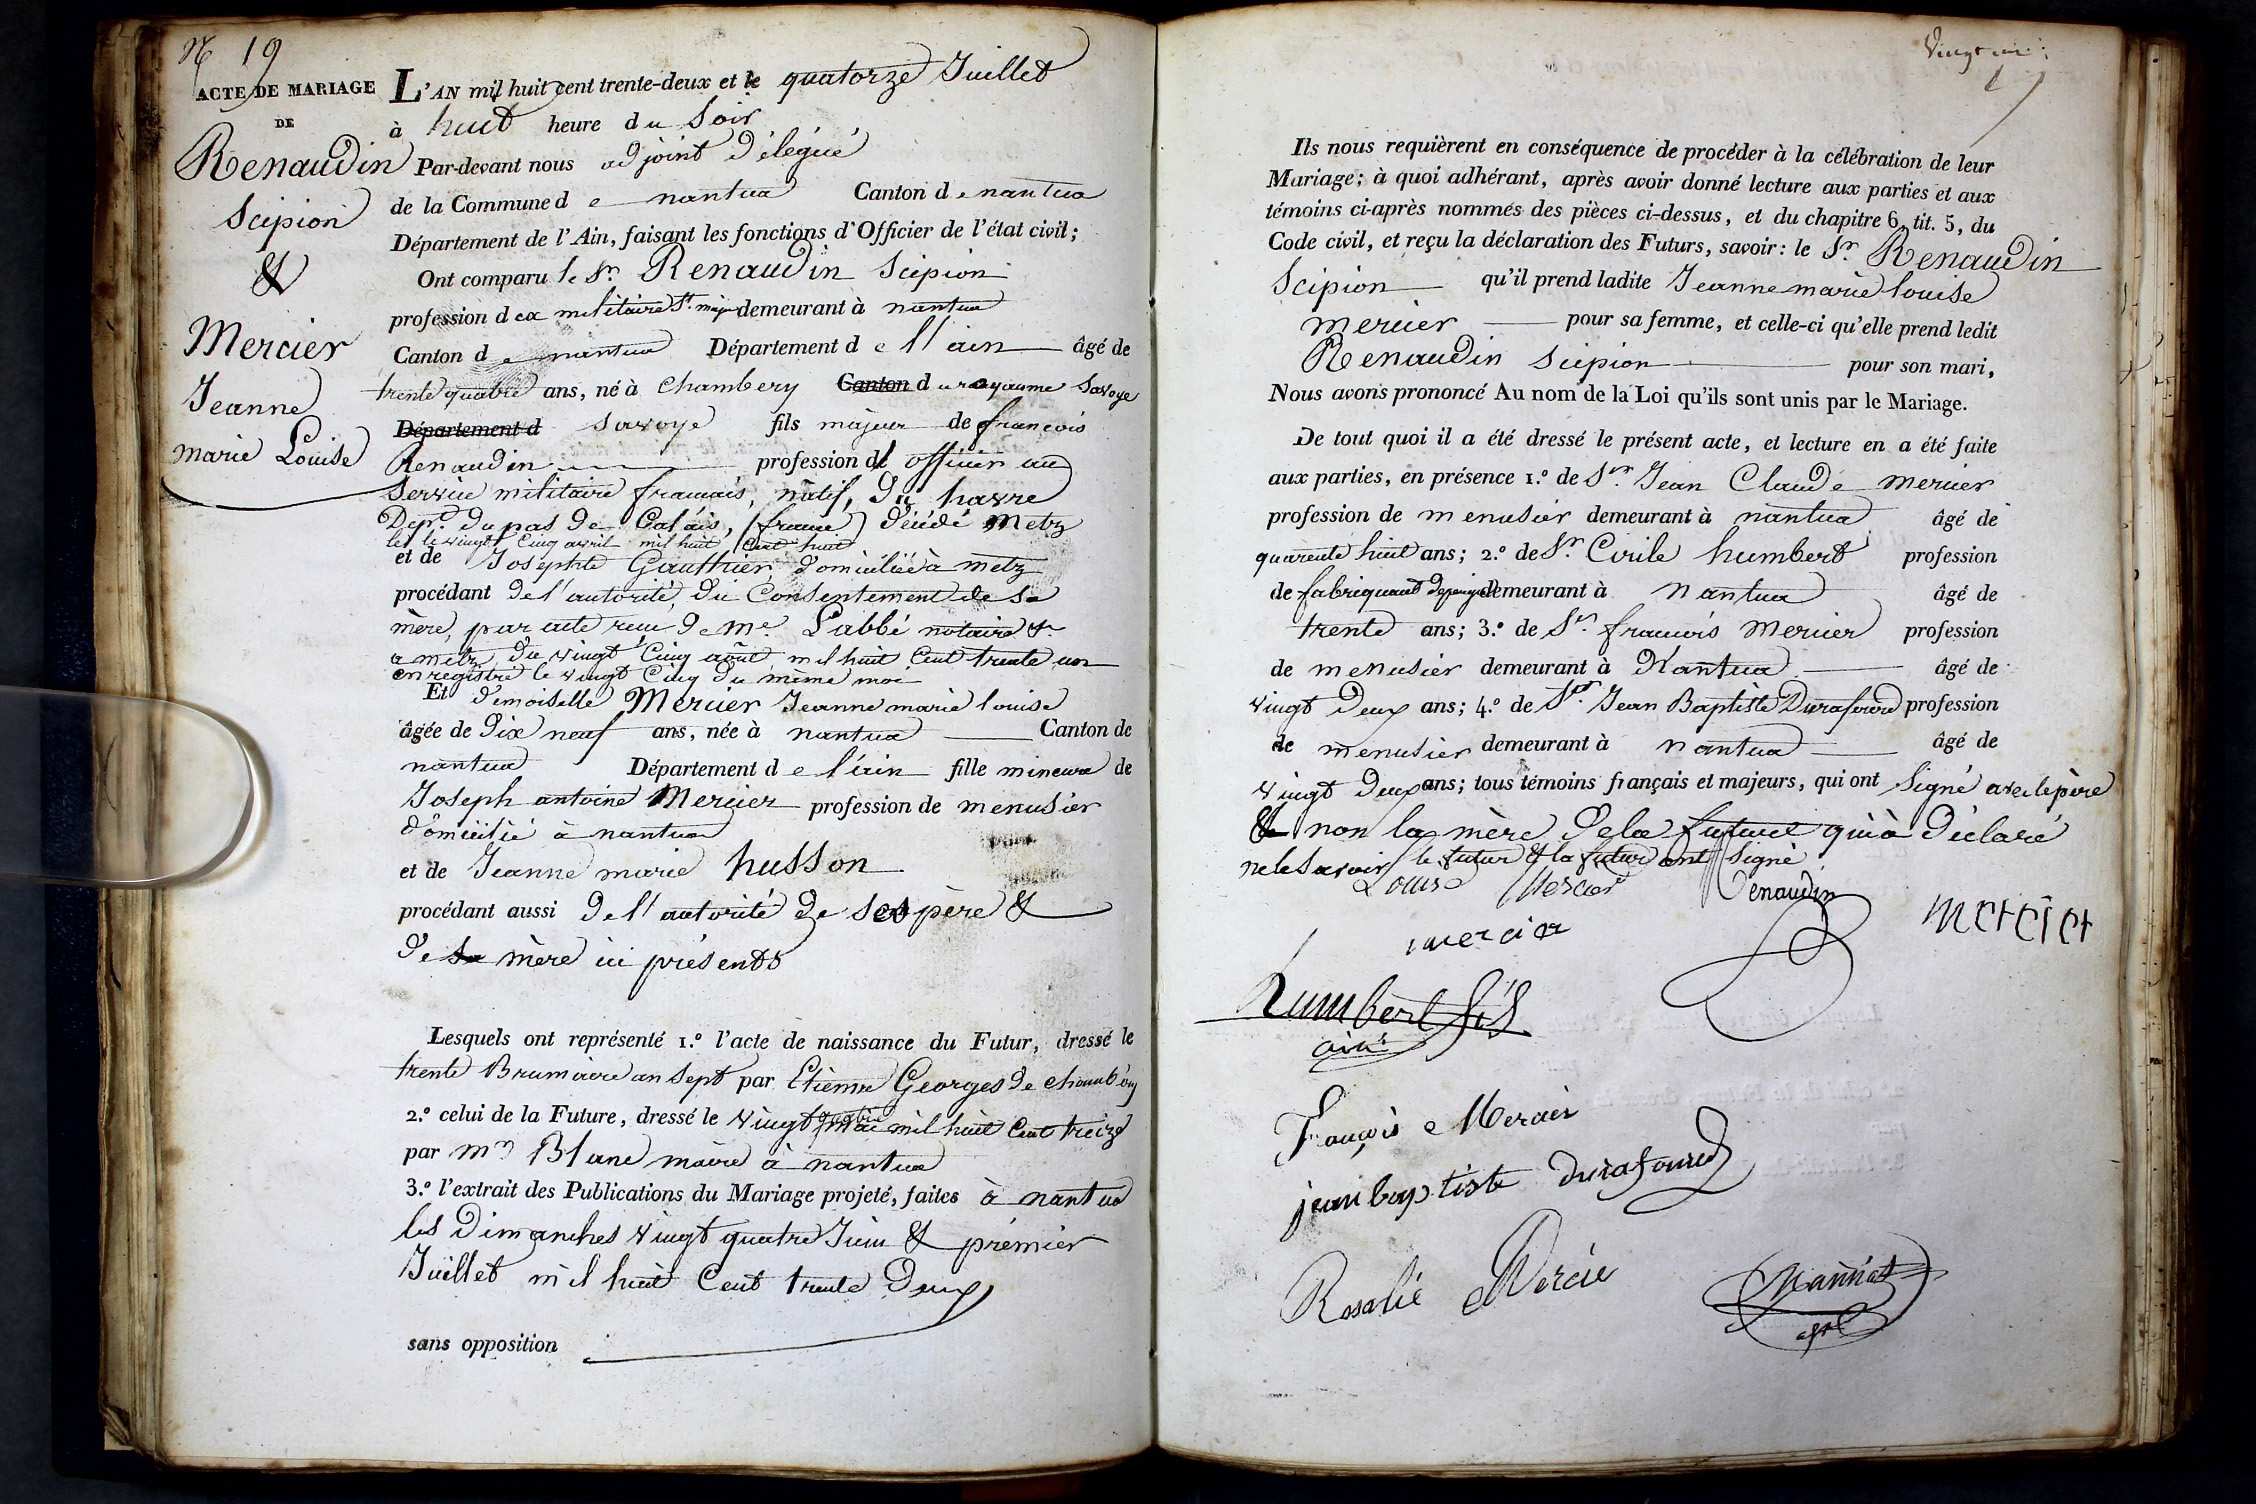 N 19
ACTE DE MARIAGE
DE
Renaudin
Scipion
&
Mercier
Jeanne
marie Louise
L'AN mil huit cent trente-deux et le quatorze Juillet
à huit heure du Soir
Par-devant nous adjoint délégué
de la Commune de nantua Canton de nantua
Département de l'Ain, faisant les fonctions d'Officier de l'état civil;
Ont comparu le Sr Renaudin Scipion
profession d ex militaire St. major demeurant à nantua
Canton de nantua Département de l'ain âgé de
trente quatre ans, né à Chambery Canton du royaume Savoye
Département d Savoye fils majeur de francois
Renaudin profession d' officier au
Service militaire francais, natif, du havre
Dept. du pas de Calais, (france) décédé Metz
le vingt Cinq avril mil huit Cent huit
et de Josephte Gauthier domiciliée à metz
procédant de l'autorité, du Consentement de sa
mère, par acte recu de Me. Labbé notaire &.
a metz, du vingt Cinq août mil huit Cent trente un
enregistré le vingt Cinq du même moi
Et demoiselle Mercier Jeanne marie louise
âgée de dix neuf ans, née à nantua Canton de
nantua Département de l'ain fille mineure de
Joseph antoine Mercier profession de menusier
domicilié à nantua
et de Jeanne marie husson
procédant aussi de l'autorité de ses père &
de sa mère ici présents
Lesquels ont représenté 1.º l'acte de naissance du Futur, dressé le
trente Brumaire an Sept par Etienne Georges de Chambéry
2.º celui de la Future, dressé le vingt quatre mai mil huit Cent treize
par Mr Blanc maire à nantua
3.º l'extrait des Publications du Mariage projeté, faites à nantua
les Dimanches vingt quatre Juin & prémier
Juillet mil huit Cent trente Deux
sans opposition
Vingt un
Ils nous requièrent en conséquence de procéder à la célébration de leur
Mariage; à quoi adhérant, après avoir donné lecture aux parties et aux
témoins ci-après nommés des pièces ci-dessus, et du chapitre 6, tit. 5, du
Code civil, et reçu la déclaration des Futurs, savoir: le Sr Renaudin
Scipion qu'il prend ladite Jeanne marie louise
mercier pour sa femme, et celle-ci qu'elle prend ledit
Renaudin Scipion pour son mari,
Nous avons prononcé Au nom de la Loi qu'ils sont unis par le Mariage.
De tout quoi il a été dressé le présent acte, et lecture en a été faite
aux parties, en présence 1.º de Sr. Jean Claude mercier
profession de menusier demeurant à nantua âgé de
quarente huit ans; 2.º de Sr. Cirile humbert profession
de fabriquant de peignes demeurant à nantua âgé de
trente ans; 3.º de Sr. francois Mercier profession
de menusier demeurant à Nantua âgé de
vingt Deux ans; 4.º de Sr. Jean Baptiste Durafourd profession
de menusier demeurant à nantua âgé de
vingt Deux ans; tous témoins français et majeurs, qui ont Signé avec le père
& non la mère de la future qui à déclaré
ne le Savoir le futur & la futur ont Signé
Louise Mercier Renaudin
mercier mercier
humbert fils
ainé
François Mercier
jean baptiste durafourd
Rosalie Mercier